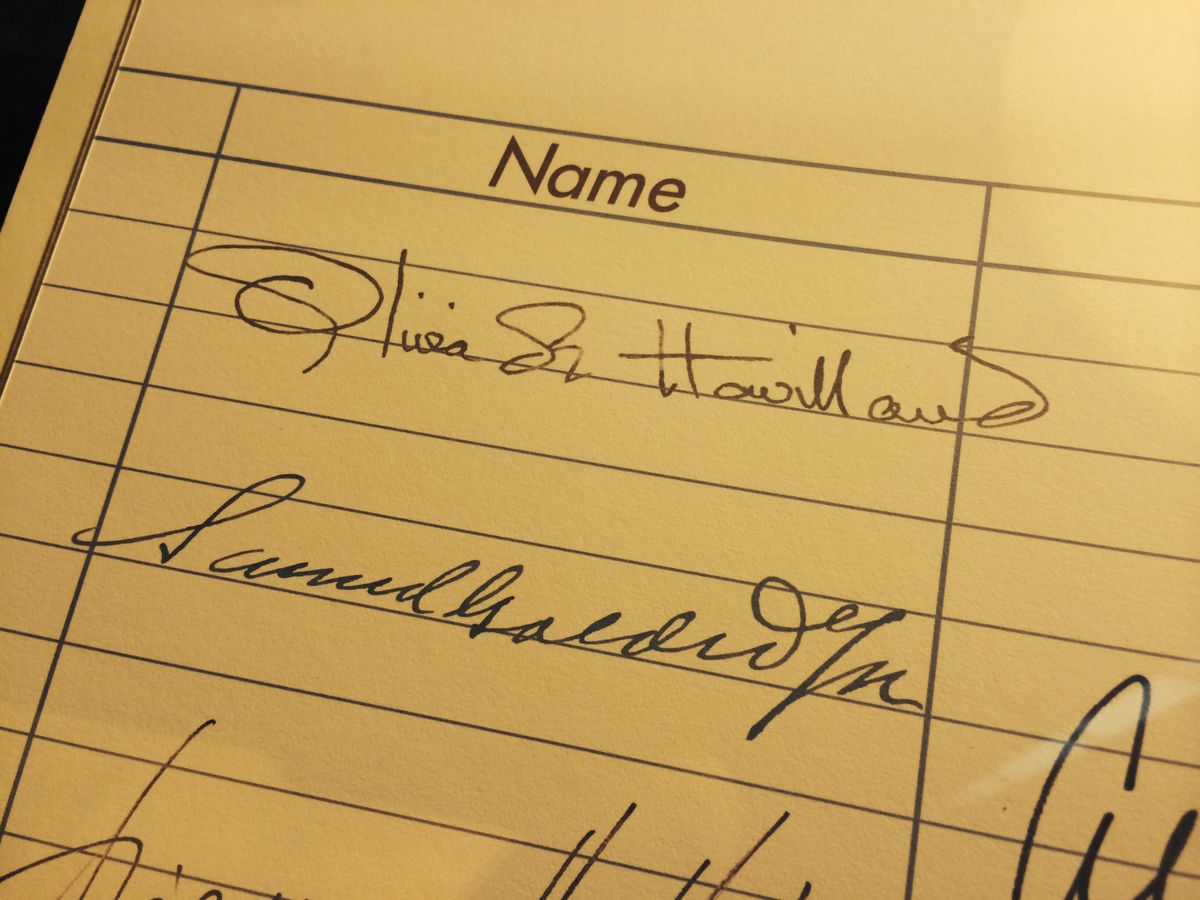 Name
Olivia de Havilland
Samuel Goldwyn Jr